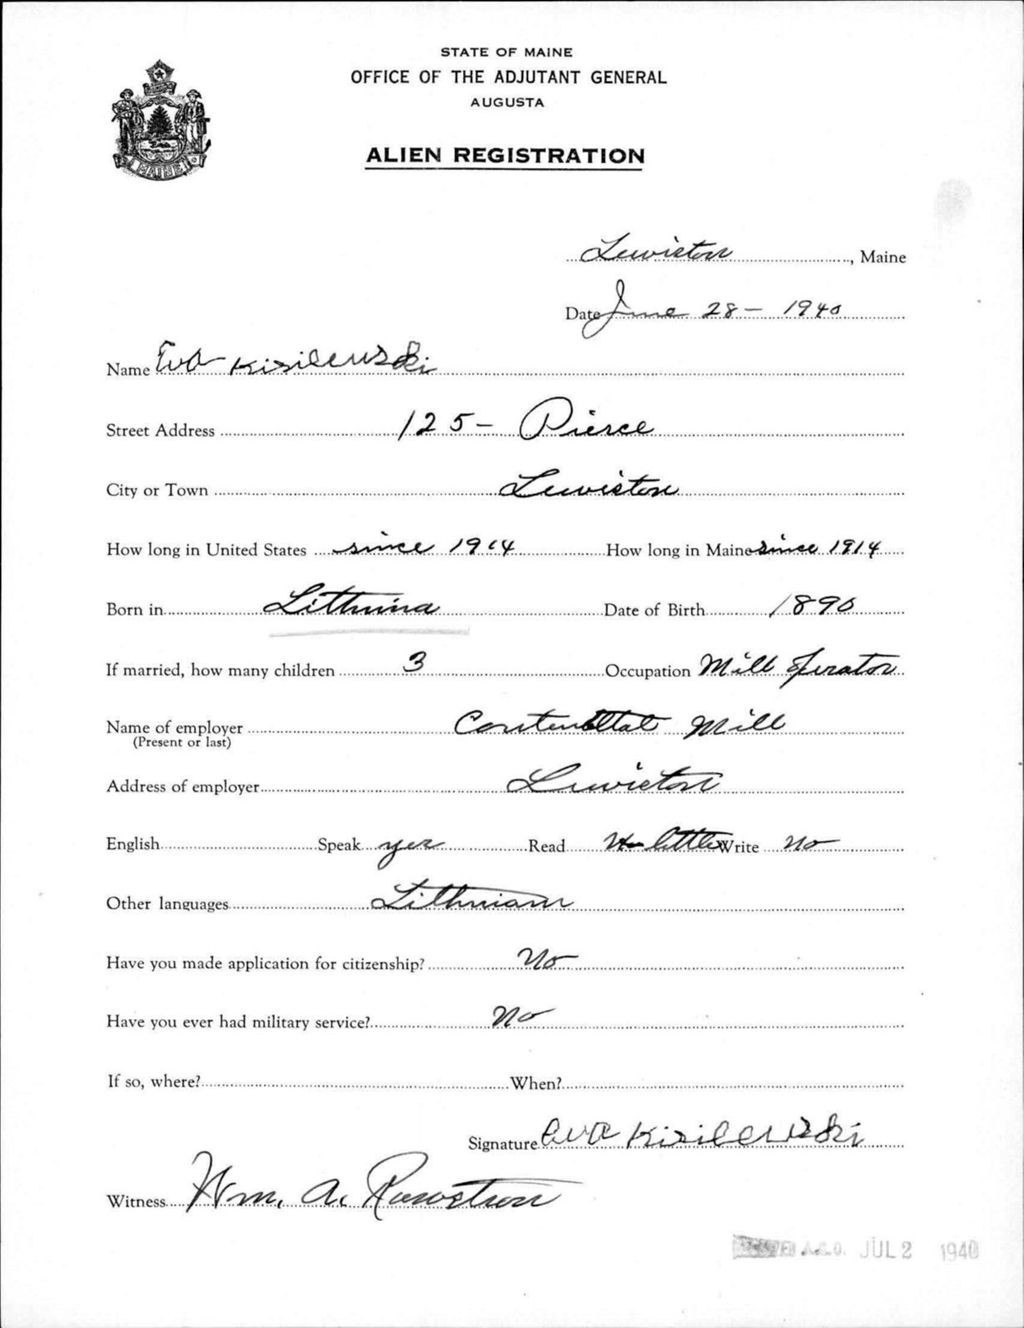 STATE OF MAINE
OFFICE OF THE ADJUTANT GENERAL
AUGUSTA
ALIEN REGISTRATION
MAINE
Lewiston, Maine
Date June 28 - 1940
Name Eva Kisilewski
Street Address 125 - Pierce
City or Town Lewiston
How long in United States since 1914 How long in Maine since 1914
Born in Lithuina Date of Birth 1890
If married, how many children 3 Occupation Mill Operator
Name of employer Contenettal Mill
(Present or last)
Address of employer Lewiston
English Speak yes Read little Write No
Other languages Lithuiann
Have you made application for citizenship? No
Have you ever had military service? No
If so, where? When?
Signature Eva Kisilewski
Witness Wm. A.
A.G.O. JUL 2 1940